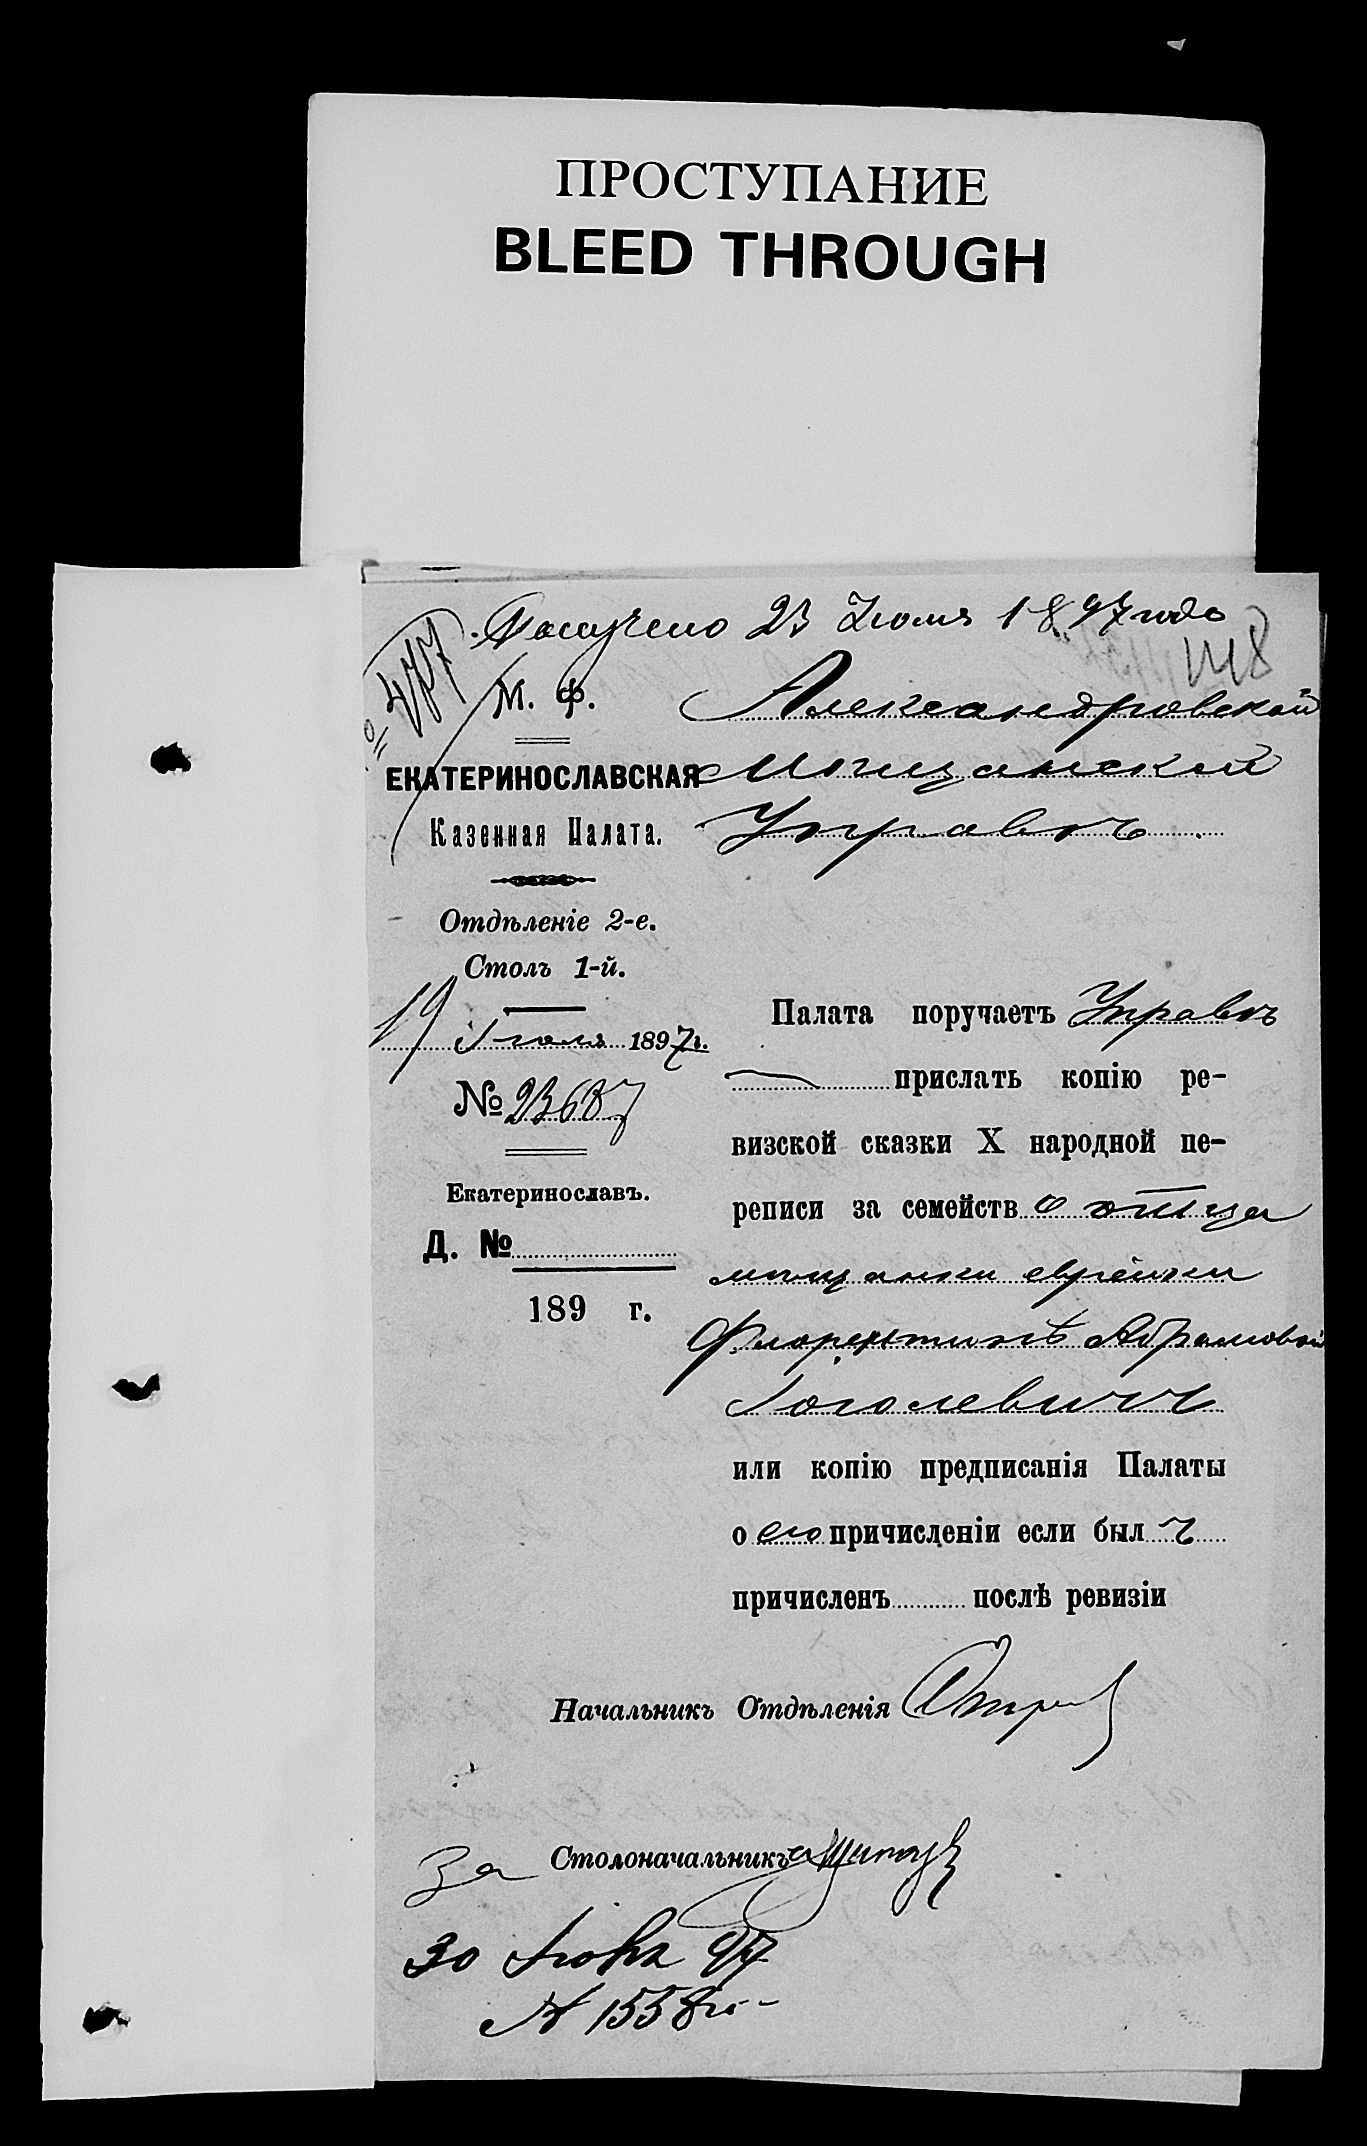 ПРОСТУПАНИЕ
BLEED THROUGH
Получено 23 Июля 1897 года
№ 477
М. Ф.
ЕКАТЕРИНОСЛАВСКАЯ
Казенная Палата.
Отдѣленіе 2-е.
Столъ 1-й.
19 Іюля 1897 г.
№ 23687
Екатеринославъ.
Д. №
189 г.
Александровской
Мѣщанской
Управѣ
Палата поручаетъ Управѣ
прислать копію ре-
визской сказки X народной пе-
реписи за семейств о отца
мѣщанки еврейки
Флорентинѣ Абрамовой
Гоголевичъ
или копію предписанія Палаты
о его причисленіи если был ъ
причисленъ послѣ ревизіи
Начальникъ Отдѣленія
За Столоначальникъ
30 97
№ 1558